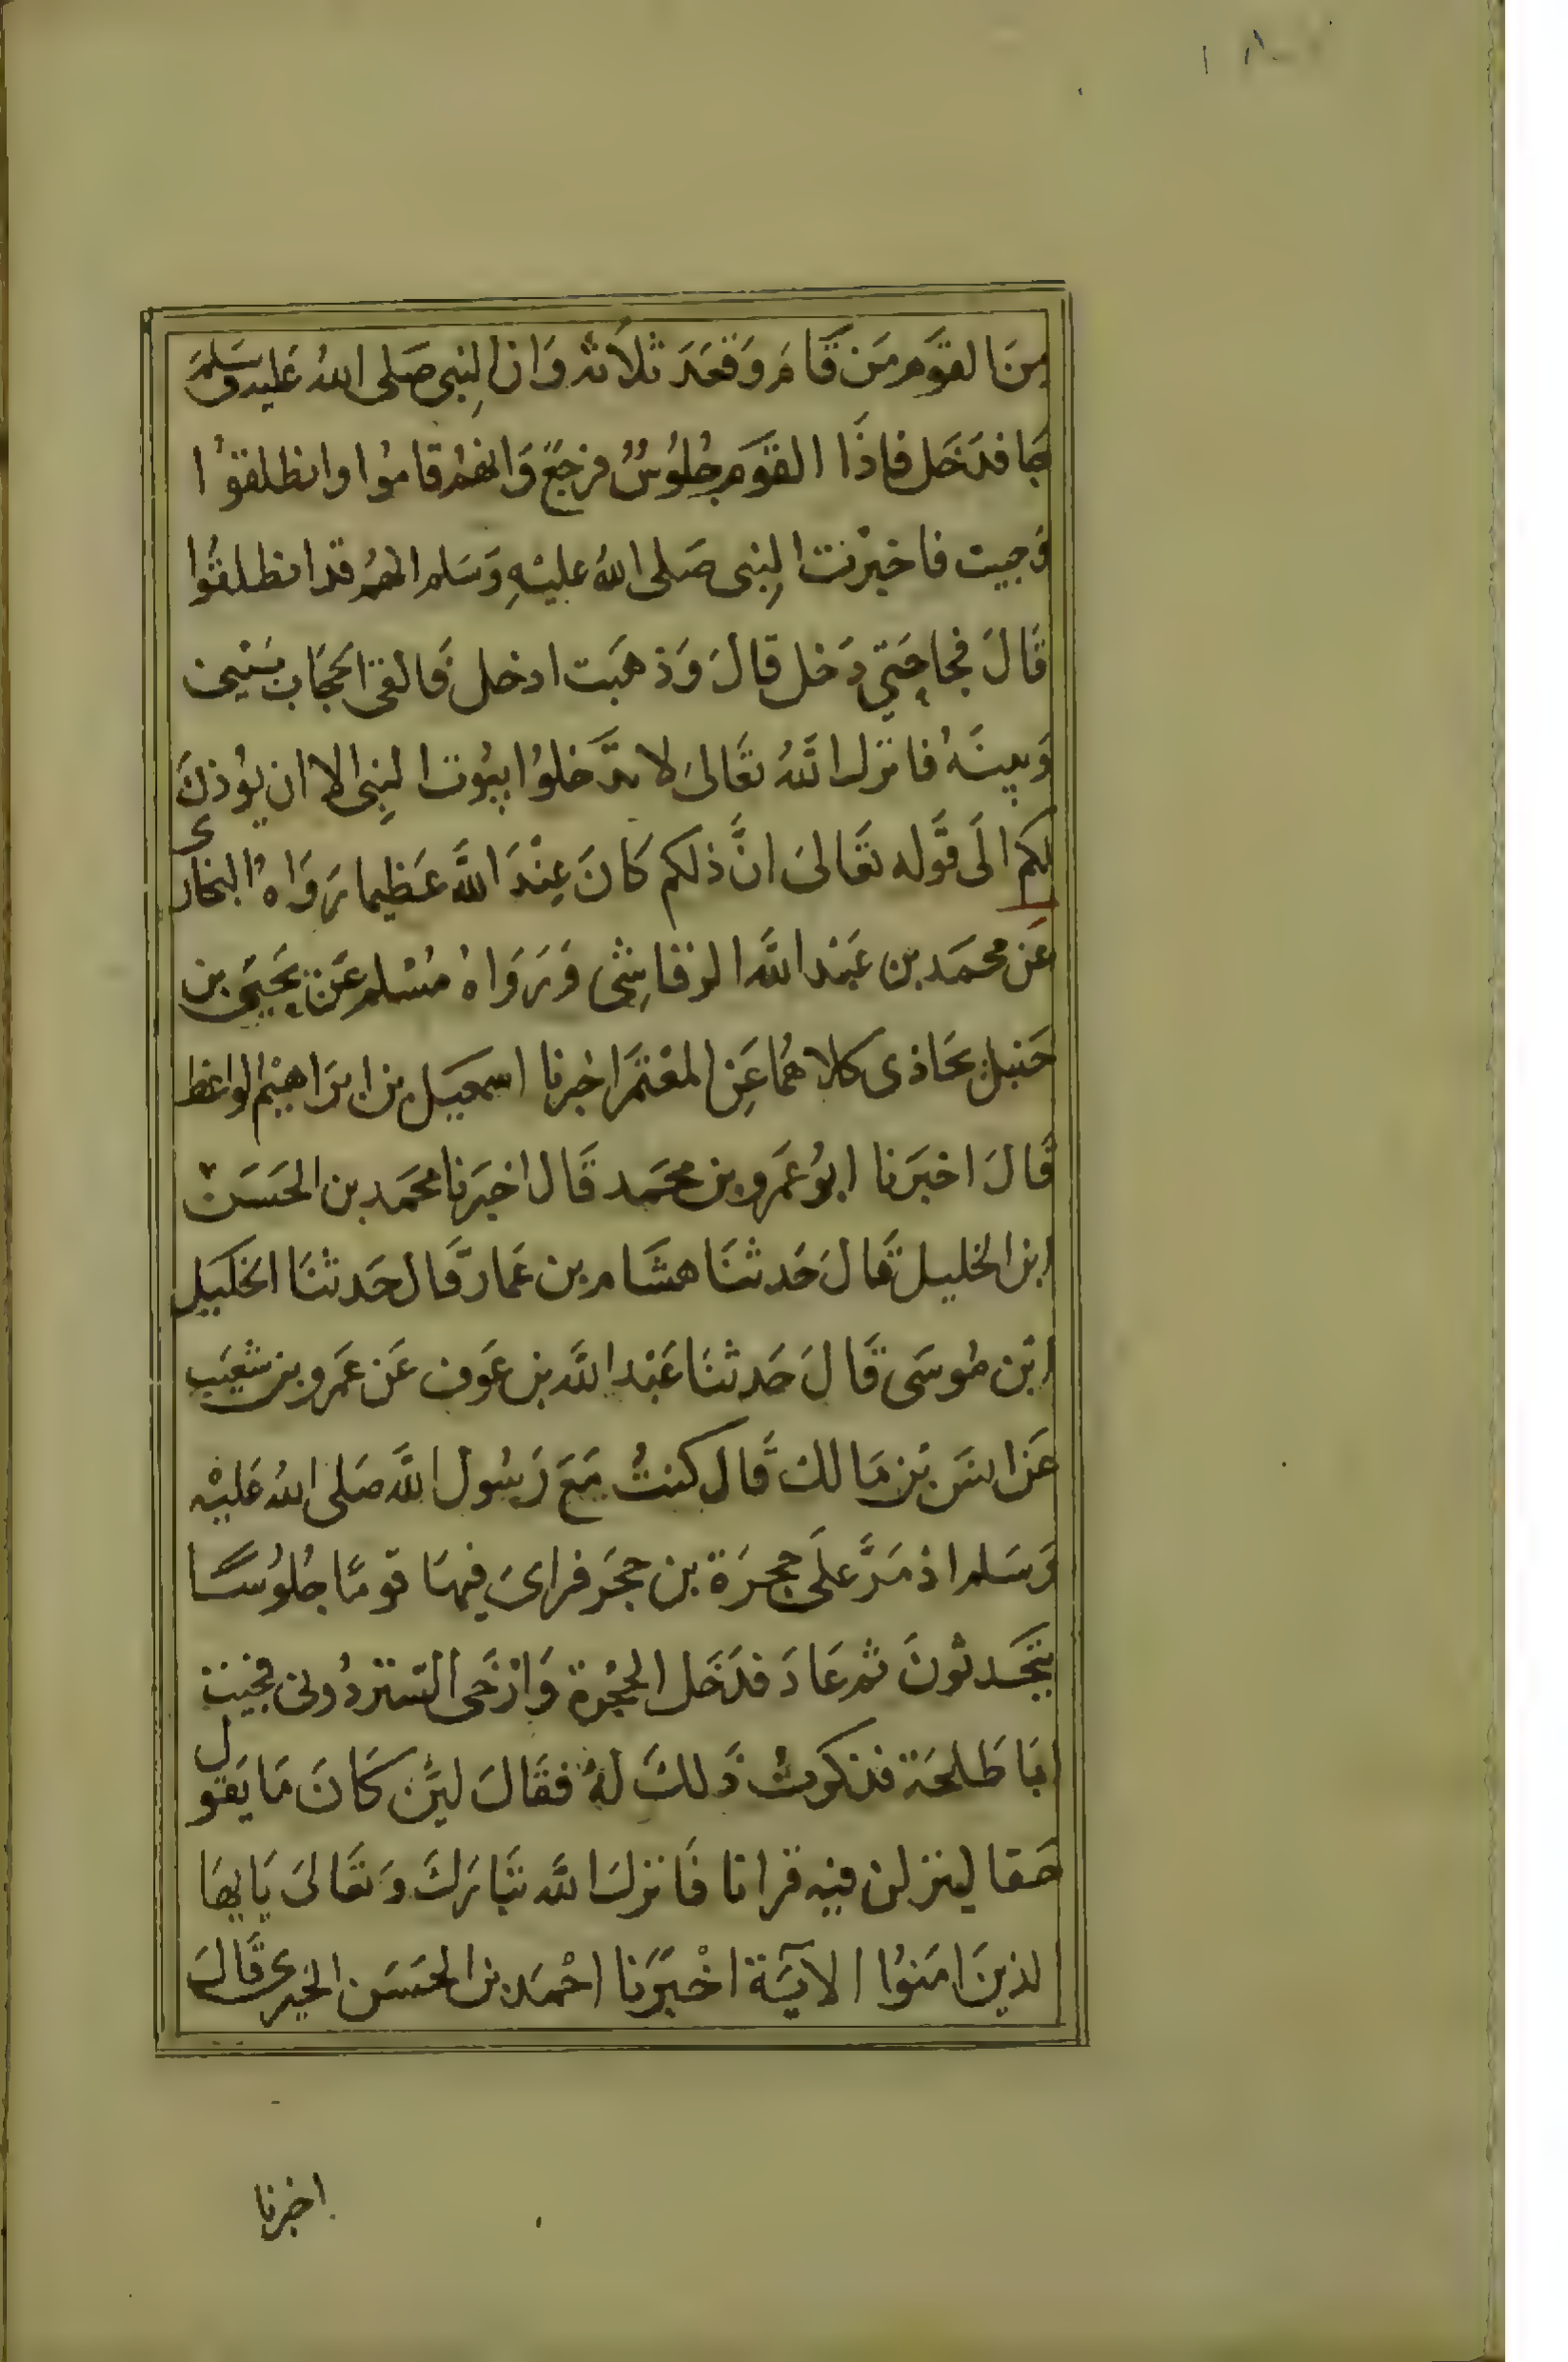 مِنَ القَوَمِ مَن قَامَ وَقعَدَ ثلاَثه وَان النِبى صَلى اللهُ عَليه وَسَلمَ
جَا فدَخَل فاذَا القوَم جُلوُسٌ فرَجَعَ وَانهمُ قامُوا وانطلقوُا
فجيت فاخبرْنت النِبى صَلى اللهُ عليْهِ وَسَلم انهمُ قد انطلقُوا
قَالَ فجا حَتي دَخل قالَ وَذهَبت ادخل فَالقى الحجَاب بَيْنى
وَبينَهُ فانزل اللَّهُ تعَالىَ لا تدَّخلوُا بيوُت النِبى الا ان يوُذنَ
لكم الَى قَوله تعَالىَ انَّ ذلكم كَانَ عِنْدَ اللَّه عَظيما رَوَاهُ البخارى
عَن محمَد بن عَبْد اللَّه الرقاشِى وَرَوَاهُ مُسْلم عَن يَحيَى بن
حَنبل بحَاذى كلاهمُا عَنِ المعْتمَر اخبرنا اسمعيَل بن ابرَاهيْم الواعظ
قالَ اخبَرَنا ابوُ عَمَرو بن محمَد قَال اخبَرنا محمَد بن الحَسَن
ابن الخليل قَالَ حَدثنَا هشَام بن عَمار قَال حَدثنَا الخليَل
ابْن مُوسَى قَالَ حَدثنَا عَبْد اللَّه بن عَوف عَن عَمرو بن شعَيب
عَن انسَ بن مَالك قَال كنتُ مَعَ رَسُول اللَّه صَلى اللهُ عَليْه
وَسَلم اذ مَرَّ عَلَى حجرَة بن حجَر فراىَ فيهَا قومًا جلُوُسًا
يتحَدثونَ ثم عَادَ فدَخَل الحجْرة وَارْخَى الستر دُونى فجيت
ابَا طَلحَة فذكرتُ ذَلكَ لهُ فقَالَ ليَن كَانَ مَا يَقول
حَقا لينزلن فيه قرانا فَانزلَ اللَّه تبَارَكَ وَتعَالىَ يَايهَا
الذينَ امَنوُا الايَة اخْبرَنا احْمَد بن الحسَن الحيرى قَالَ
اخبرنا